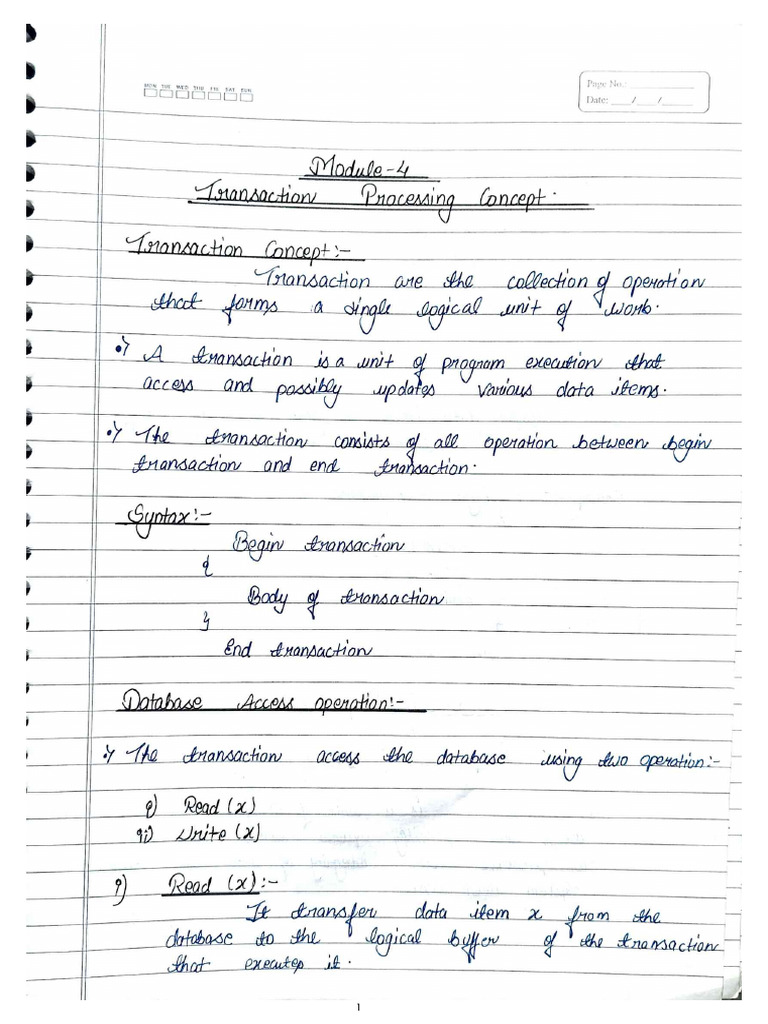 MON TUE WED THU FRI SAT SUN
Page No.:
Date: / /
Module-4
Transaction Processing Concept.
Transaction Concept:-
Transaction are the collection of operation
that forms a single logical unit of work.
•) A transaction is a unit of program execution that
access and possibly updates various data items.
•) The transaction consists of all operation between begin
transaction and end transaction.
Syntax:-
Begin transaction
{
Body of transaction
}
End transaction
Database Access operation:-
•) The transaction access the database using two operation:-
i) Read (x)
ii) Write (x)
i) Read (x):-
It transfer data item x from the
database to the logical buffer of the transaction
that executes it.
1